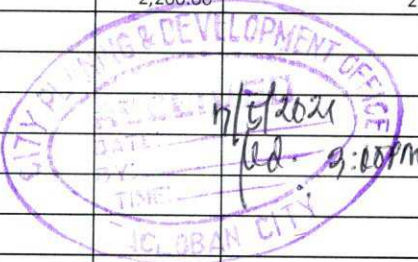 2,200.00 2
CITY PLANNING & DEVELOPMENT OFFICE
RECEIVED
DATE:
BY:
TIME:
/5/2021
3:00PM
TACLOBAN CITY